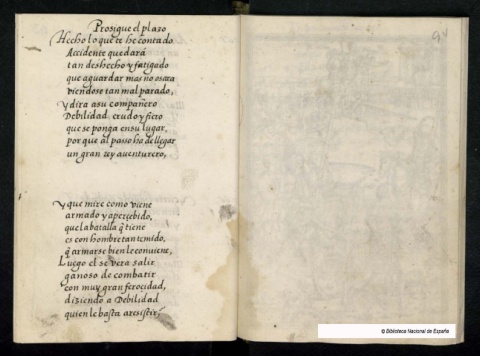 Prosigue el plaso
Hecho lo que te he contado
Accidente quedará
tan deshecho y fatigado
que aguardar mas no osara
viendose tan mal parado,
Y dira a su compañero
Debilidad crudo y fiero
que se ponga en su lugar,
por que al passo ha de llegar
un gran rey aventurero,
Y que mire como viene
armado y apercebido,
que la batalla q̃ tiene
es con hombre tan temido,
q̃ armarse bien le conviene,
Luego el se vera salir
ganoso de combatir
con muy gran ferocidad,
diziendo a Debilidad
quien le basta a resistir?
94
© Biblioteca Nacional de España